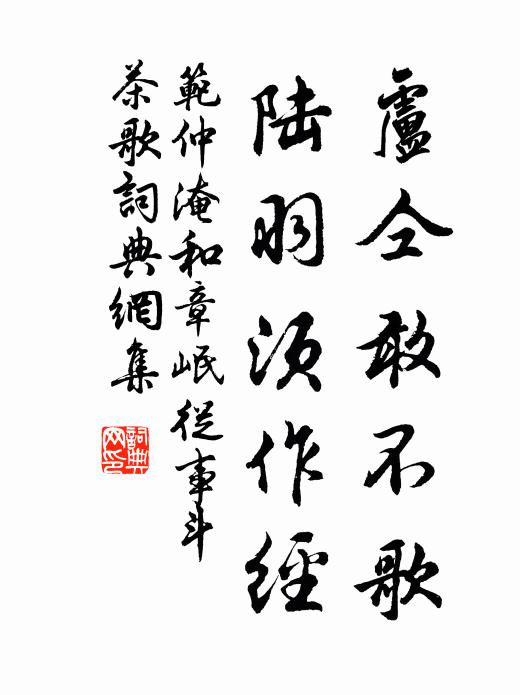 盧仝敢不歌
陸羽須作經
範仲淹和章岷從事斗
茶歌詞典網集
詞典
网印